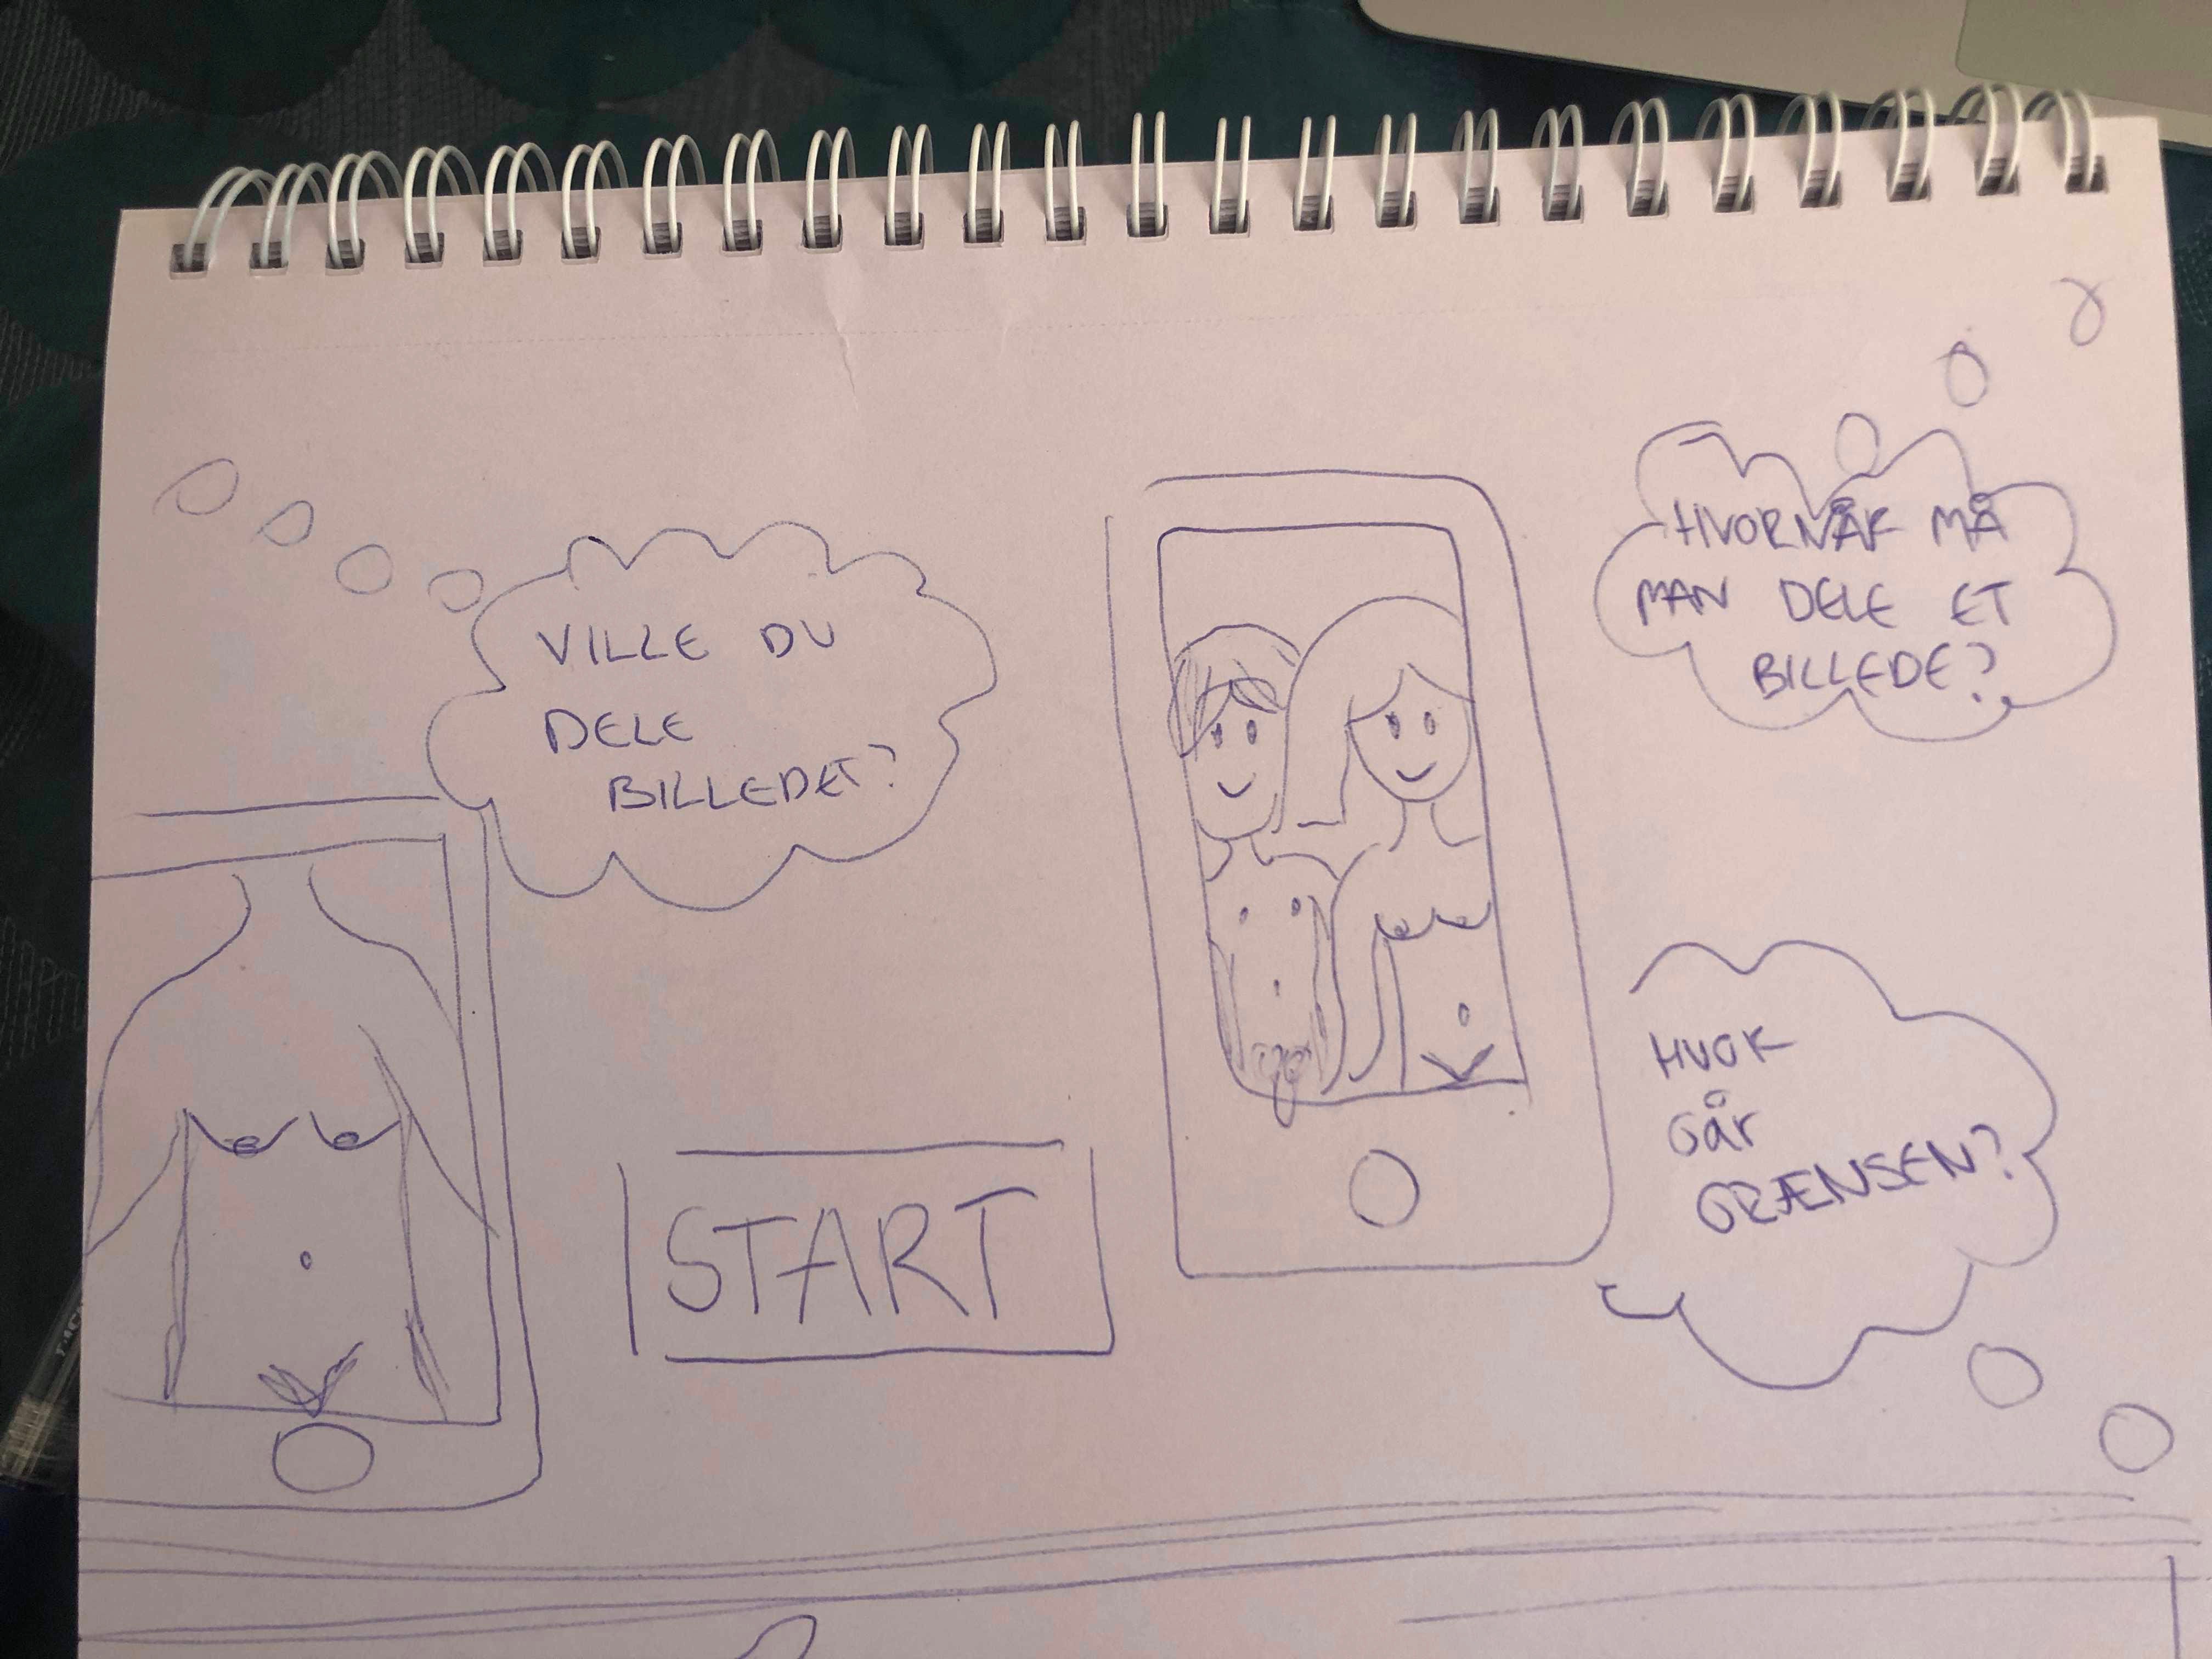 VILLE DU
DELE
BILLEDET?
HVORNÅR MÅ
MAN DELE ET
BILLEDE?
HVOR
GÅR
GRÆNSEN?
START